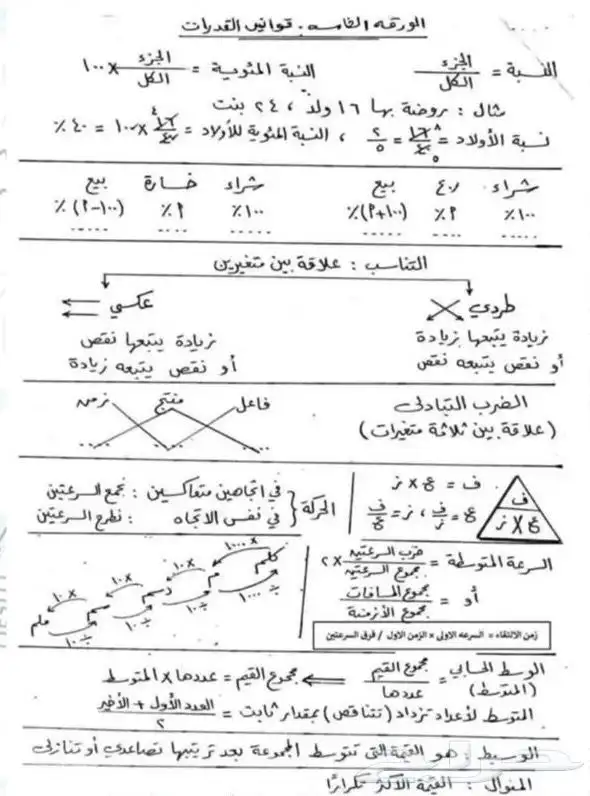 الورقه الخامسه : قوانين القدرات
النسبة = الجزء / الكل    النسبة المئوية = الجزء / الكل × ١٠٠
مثال : روضة بها ١٦ ولد ، ٢٤ بنت
نسبة الأولاد = ١٦ / ٤٠ = ٢ / ٥ ، النسبة المئوية للأولاد = ١٦ / ٤٠ × ١٠٠ = ٤٠ ٪
شراء بيع    شراء خسارة بيع
١٠٠٪ ٢٪ (١٠٠+٢)٪    ١٠٠٪ ٢٪ (١٠٠-٢) ٪
..... ..... .....    ..... ..... .....
التناسب : علاقة بين متغيرين
طردي    عكسي
زيادة يتبعها زيادة    زيادة يتبعها نقص
أو نقص يتبعه نقص    أو نقص يتبعه زيادة
الضرب التبادلى    فاعل منتج زمن
(علاقة بين ثلاثة متغيرات)    .... .... ....
ف
ع × ز
ف = ع × ز
ع = ف / ز ، ز = ف / ع
الحركة { في اتجاهين متعاكسين : نجمع السرعتين
في نفس الاتجاه : نطرح السرعتين
السرعة المتوسطة = ضرب السرعتين / مجموع السرعتين × ٢
أو = مجموع المسافات / مجموع الأزمنة
زمن الالتقاء = السرعه الاولى × الزمن الاول / فرق السرعتين
كلم م دسم سم ملم
× ١٠٠٠ × ١٠ × ١٠ × ١٠
÷ ١٠٠٠ ÷ ١٠ ÷ ١٠ ÷ ١٠
الوسط الحسابي = مجموع القيم / عددها ⇐ مجموع القيم = عددها × المتوسط
(المتوسط)
المتوسط لأعداد تزداد (تتناقص) بمقدار ثابت = العدد الأول + الأخير / ٢
الوسيط : هو القيمة التى تتوسط المجموعة بعد ترتيبها تصاعدي أو تنازلى
المنوال : القيمة الأكثر تكرارًا
حراج